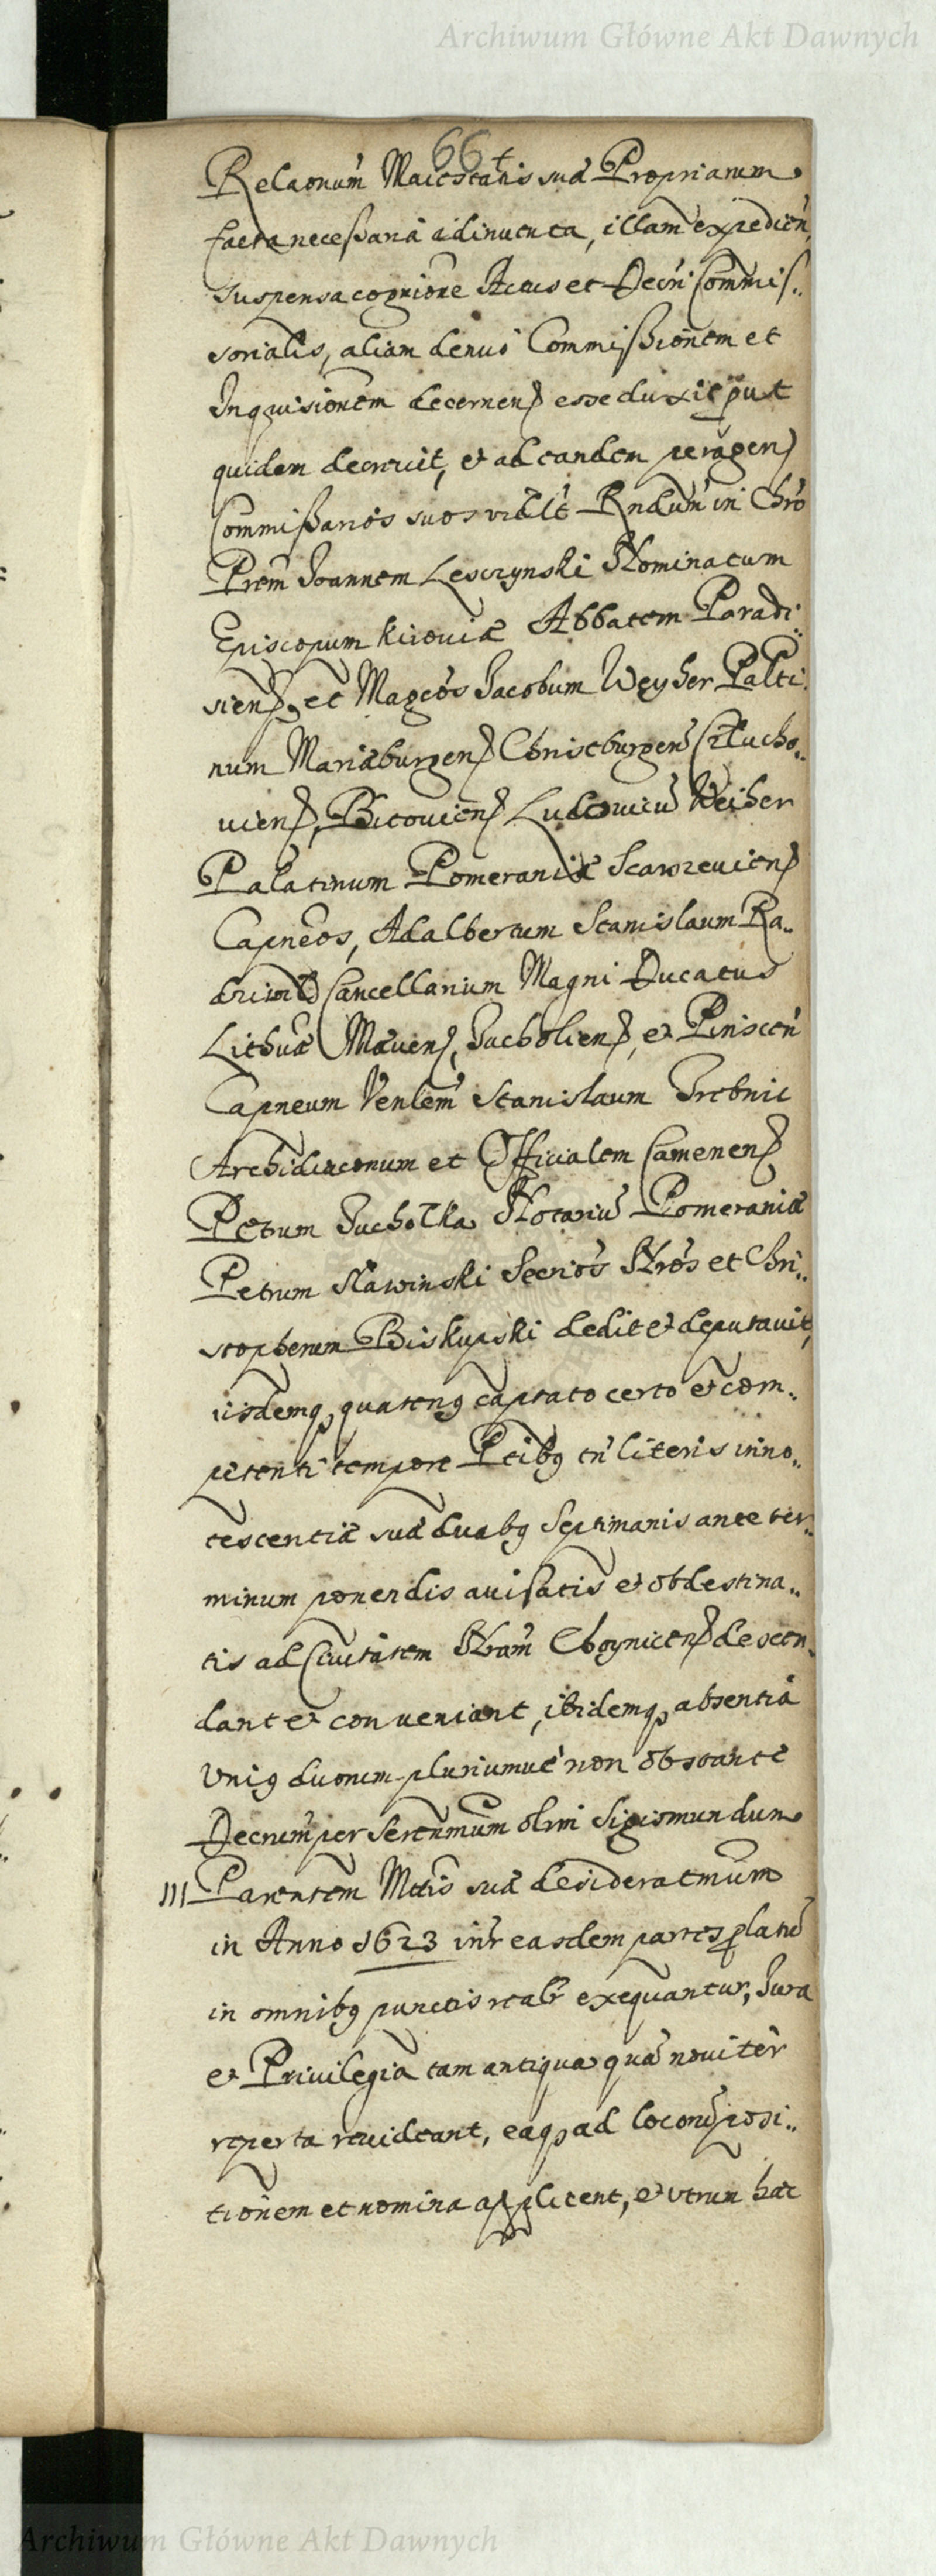 Archiwum Główne Akt Dawnych
66t
Relaonum̃ Maiestatis suæ Propriarum
facta necessaria adinventa, illam expedien̄,
suspensa cognione Actus et Decri Commis..
sorialis, aliam denuo Commissionem et
Inquisionem decernen̄ esse duxit put
quidem decrevit, et ad eandem peragen̄
Commissarios suos vidlt Rndum in Chro
Prem Joannem Lesczynski Nominatum
Episcopum Kioviæ Abbatem Paradi..
sien̄, et Magcos Jacobum Weyher Palti..
num Mariæburgen̄ Christburgen̄ Czlucho..
vien̄, Bitovien̄ Ludovicu Weiher
Palatinum Pomeraniæ Scarszevien̄
Capneos, Adalbertum Stanislaum Ra..
dziwil Cancellarium Magni Ducatus
Lithuæ Mæven̄, Tucholien̄, et Pinscen̄
Capneum Venlem Stanislaum Trebnic
Archidiaconum et Officialem Camenen̄
Petrum Tucholka Notariu Pomeraniæ
Petrum Nawinski Secrios Nros et Chri..
stopherum Biskupski dedit et deputavit,
iisdemq, quatenq captato certo et com..
petenti tempore Ptibq tn literis inno..
tescentiæ suæ duabq Septimanis ante ter..
minum ponendis avisatis et obdestina..
tis ad Civitatem Nram Choynicen̄ descen..
dant et conveniant, ibidemq absentia
Uniq duorum pluriumve non obstante
Decrum per Serenmum olim Sigismundum
III Parentem Mttis suæ desideratmum
in Anno 1623 intr easdem partes platu
in omnibq punctis realr exequantur, Jura
et Privilegia tam antiqua qua noviter
reperta revideant, eaq ad locorum posi..
tionem et nomina applicent, et utrum hæc
Archiwum Główne Akt Dawnych